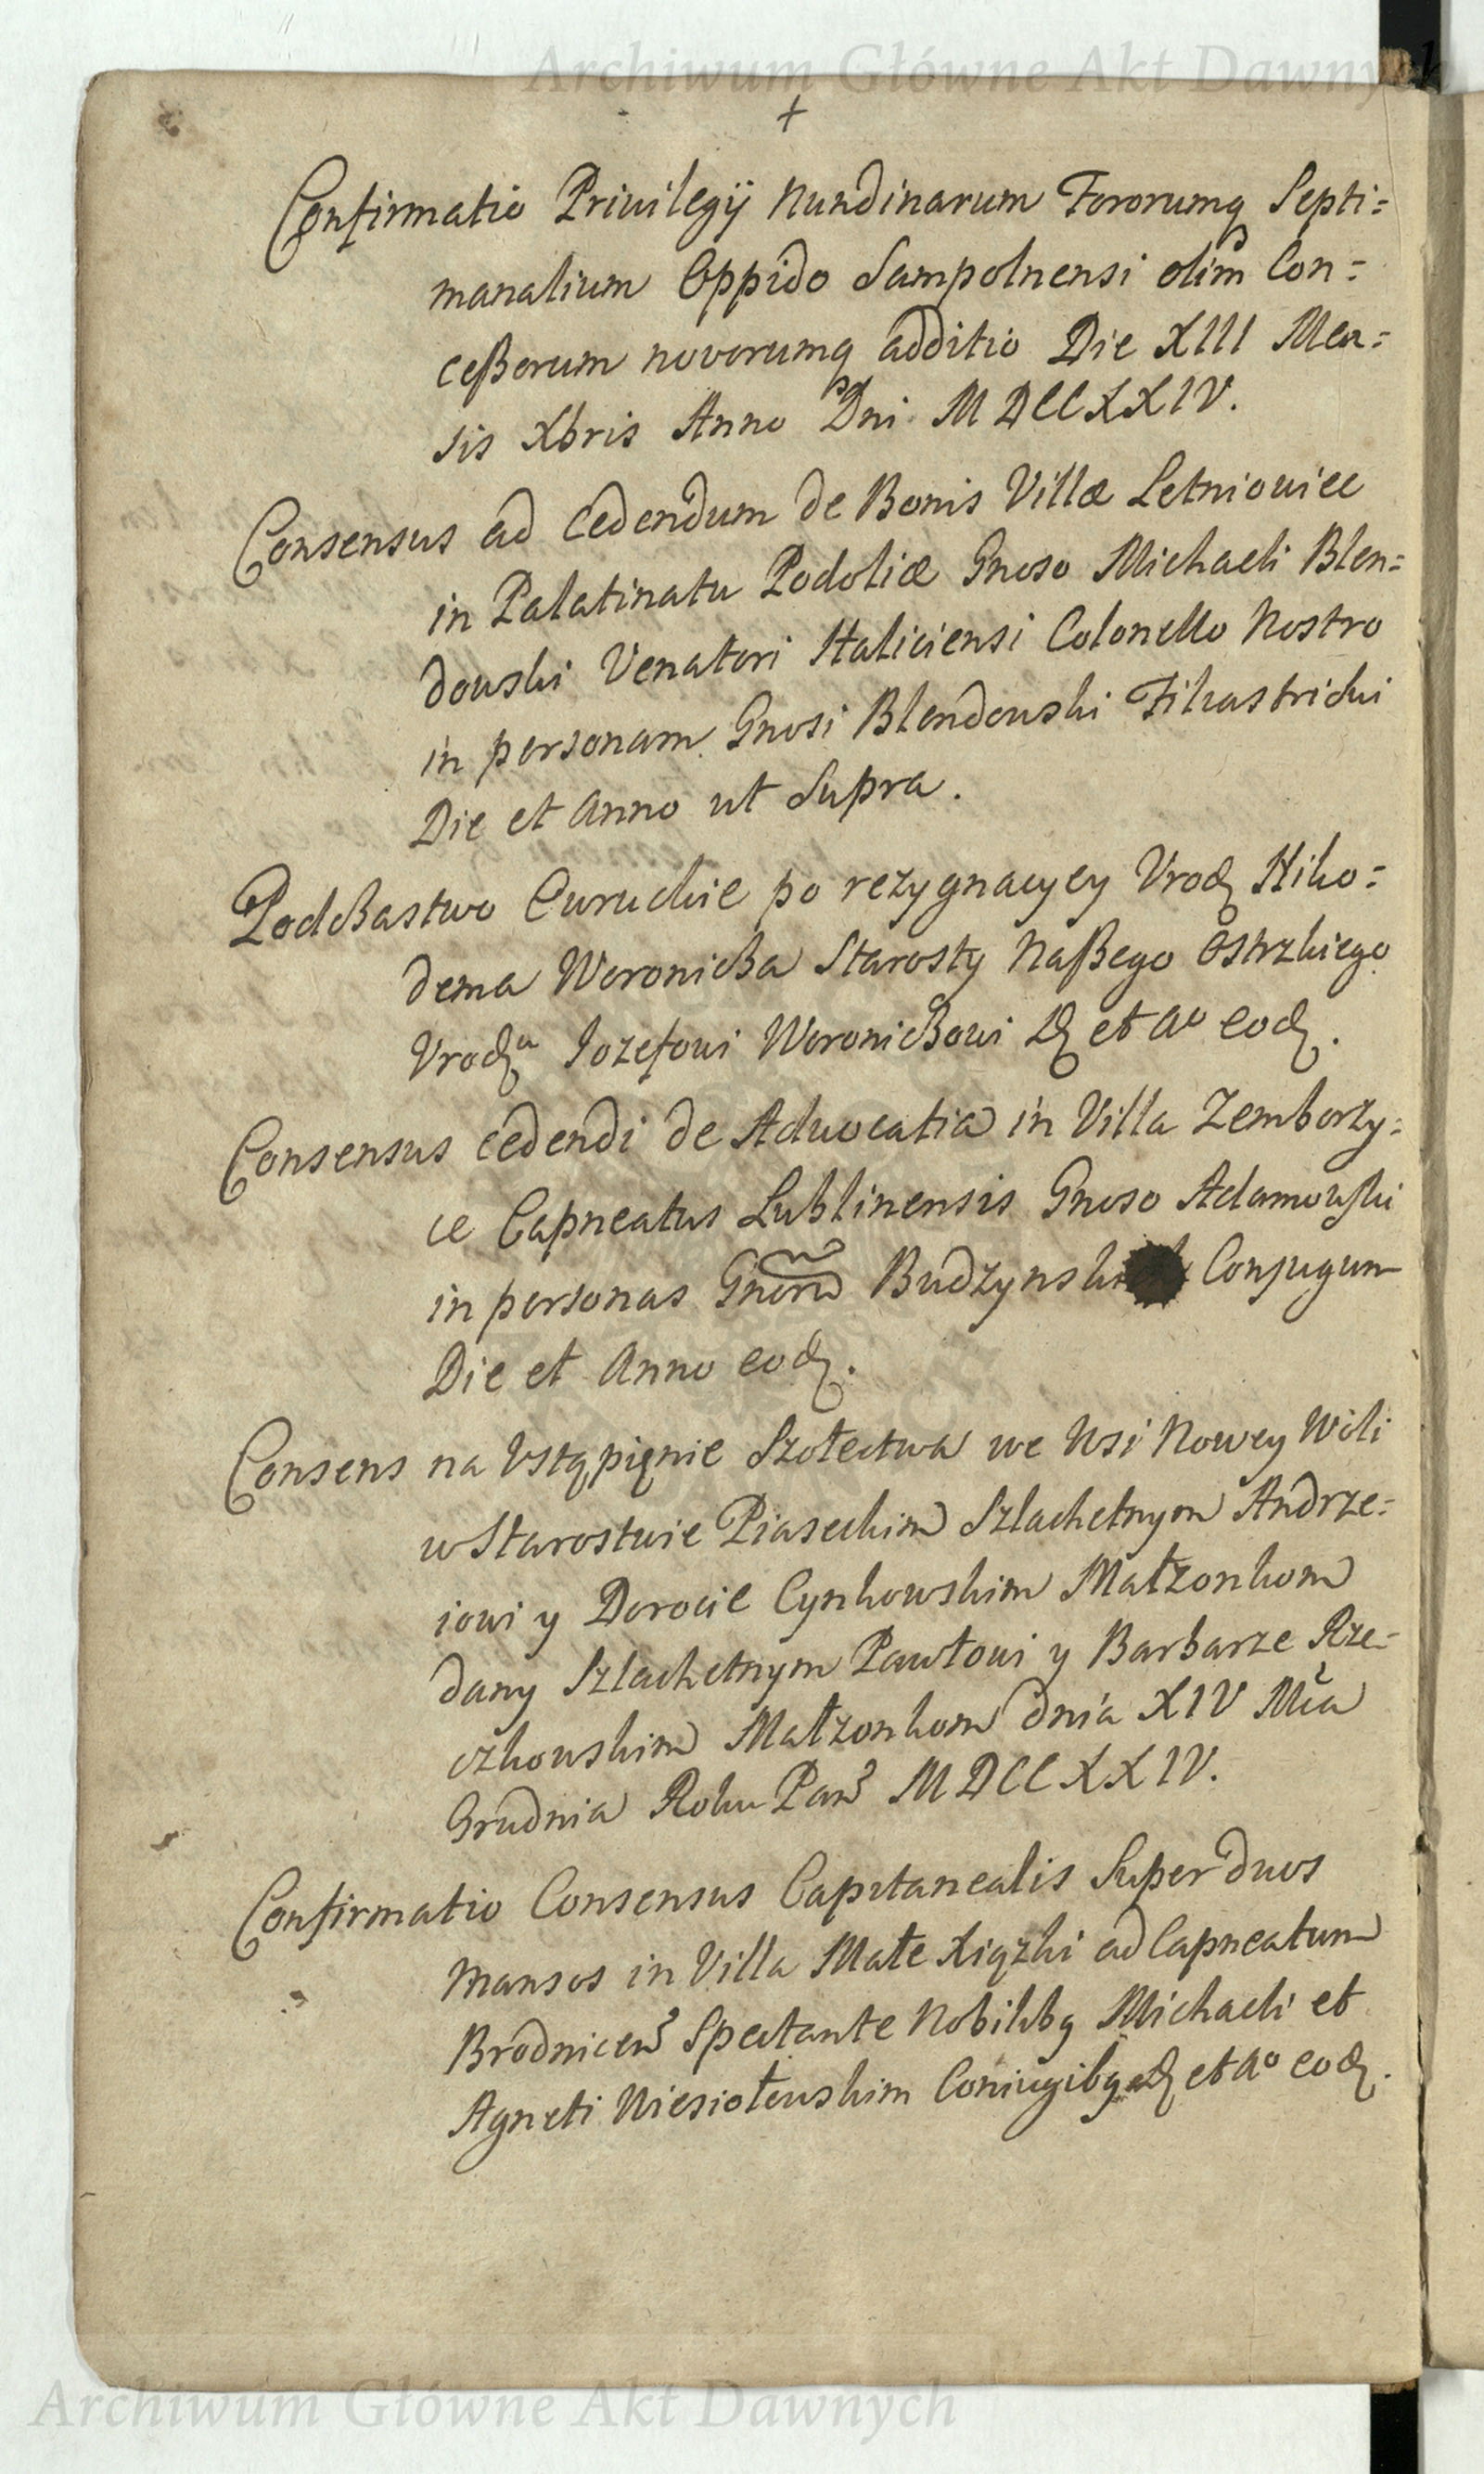 Archiwum Główne Akt Dawnych
+
Confirmatio Privilegÿ Nundinarum Fororumq Septi=
manalium Oppido Sampolnensi olim Con=
ceßorum novorumq additio Die XIII Men=
sis Xbris Anno Dni MDCCXXIV.
Consensus ad Cedendum de Bonis Villæ Letniowiec
in Palatinatu Podoliæ Gnoso Michaeli Blen=
dowski Venatori Haliciensi Colonello Nostro
in personam Gnosi Blendowski Filiastri dui
Die et Anno ut Supra.
Podczastwo Owruckie po rezygnacyey Vrod Niko=
dema Woronicza Starosty Naßego Ostrzkiego
Vrodᵘ Iozefowi Woroniczowi D et Aº eod.
Consensus cedendi de Advocatia in Villa Zemborzy=
ce Capneatus Lublinensis Gnoso Adamowski
in personas Gnoru Budzynskich Conjugum
Die et Anno eod.
Consens na Vstąpięnie Szołectwa we Wsi Nowey Woli
w Starostwie Piaseckim Szlachetnym Andrze=
iowi y Dorocie Cynkowskim Małzonkom
dany Szlachetnym Pawłowi y Barbarze Rze=
czkowskim Małzonkom dnia XIV Mca
Grudnia Roku Pan MDCCXXIV.
Confirmatio Consensus Capitanealis Super duos
Mansos in Villa Małe Xiązki ad Capneatum
Brodnicen Spectante Nobilibq Michaeli et
Agneti Niesiołowskim Coniugibq D et Aº eod.
Archiwum Główne Akt Dawnych